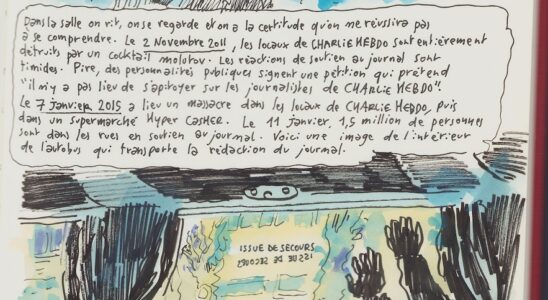 Dans la salle on rit, on se regarde et on a la certitude qu'on ne réussira pas
à se comprendre. Le 2 Novembre 2011, les locaux de CHARLIE HEBDO sont entièrement
détruits par un cocktail molotov. Les réactions de soutien au journal sont
timides. Pire, des personalités publiques signent une pétition qui prétend
"il n'y a pas lieu de s'apitoyer sur les journalistes de CHARLIE HEBDO".
Le 7 janvier 2015 a lieu un massacre dans les locaux de CHARLIE HEBDO, puis
dans un supermarché Hyper Casher. Le 11 janvier, 1,5 million de personnes
sont dans les rues en soutien au journal. Voici une image de l'intérieur
de l'autobus qui transporte la rédaction du journal.
ISSUE DE SECOURS
ISSUE DE SECOURS